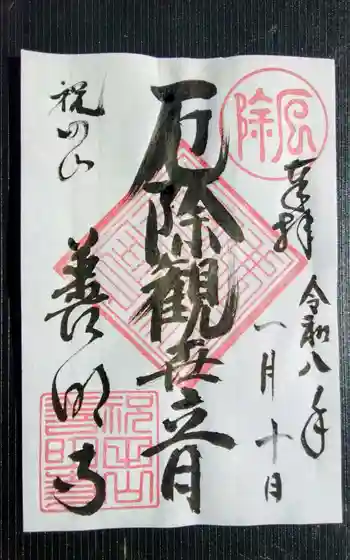 奉拝
令和八年
一月十日
厄除
厄除観世音
祝田山
善明寺